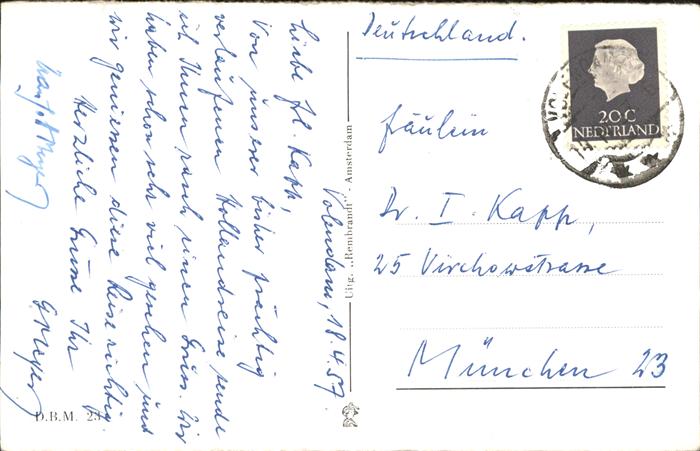 Volendam, 18.4.57
Liebe Frl. Kapp,
Von unserer bisher prächtig
verlaufenen Hollandreise sende
ich Ihnen rasch einen Gruss. Wir
haben schon sehr viel gesehen und
wir geniessen diese Reise richtig.
Herzliche Grüsse Ihr
GMeyer
Uitg. „Rembrandt" - Amsterdam
D.B.M. 23
Deutschland.
20C
NEDERLAND
Fräulein
Dr. I. Kapp,
25 Virchowstrasse
München 23